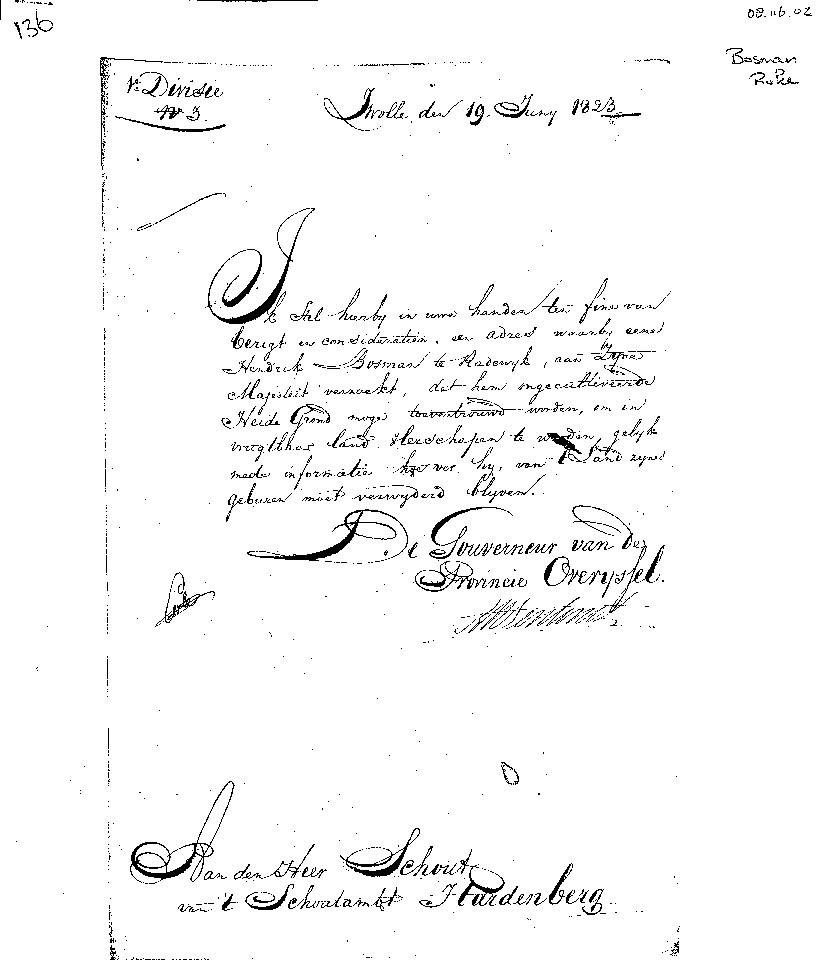 136
08.116.02
Bosman
1e Divisie
No 3
Zwolle, den 19. Juny 1823
Ik stel hierby in uwe handen ten fine van
berigt en consideratien, een adres waarby eene
Hendrik Bosman te Radewyk, aan Zyne
Majesteit verzoekt, dat hem ongecultiveerde
Heide Grond moge toevertrouwd worden, om in
vrugtbaar land herschapen te worden, gelyk
mede informatie hoe ver hy, van 't Land zyner
geburen moet verwyderd blyven.
De Gouverneur van de
Provincie Overyssel.
Aan den Heer Schout
van 't Schoutambt Hardenberg